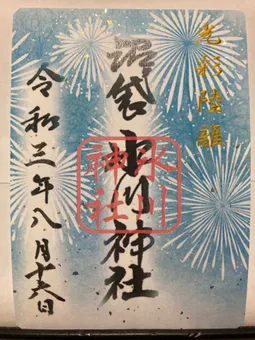 光彩陸離
沼袋 氷川神社
氷川
神社
令和三年八月十六日